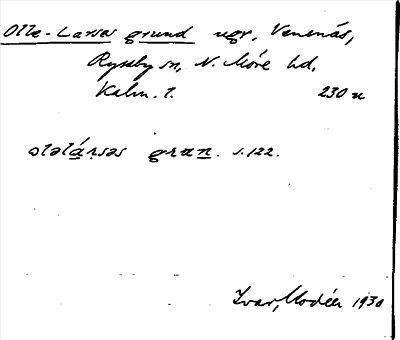 Olle-Larses grund ugr. Venenäs,
Ryssby sn, N. Möre hd,
Kalm. l. 230 u
ɷlɘlársɘs gran. s. 122.
Ivar Modéer 1930